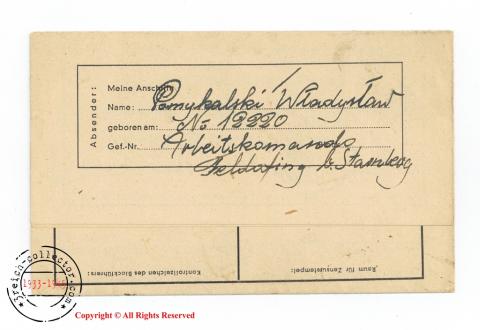 Absender:
Meine Anschrift:
Name: Pomykalski Władysław
geboren am: No 12220
Gef.-Nr. Arbeitskomando
Feldafing b. Starnberg
Kontrollzeichen des Blockführers:
Raum für Zensurstempel:
3reich-collector.com
1933-1945
Copyright © All Rights Reserved